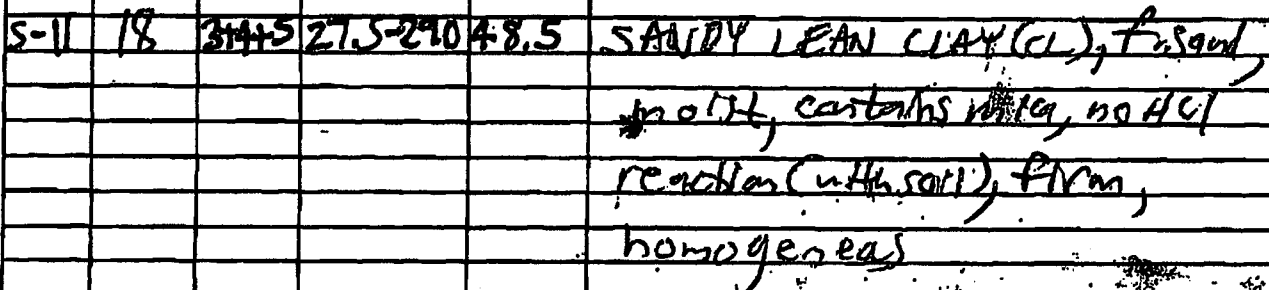 S-11 18 3+4+5 27.5-29.0 48.5 SANDY LEAN CLAY (CL), fn. sand,
moist, contains mica, no HCl
reaction (with soil), firm,
homogeneas